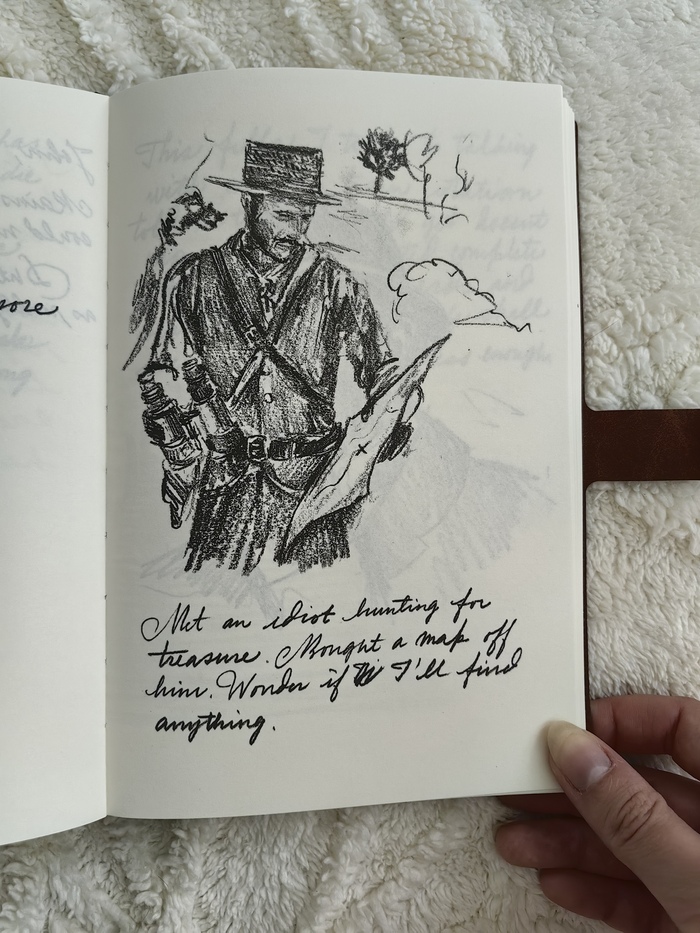 Met an idiot hunting for
treasure. Bought a map off
him. Wonder if I'll find
anything.